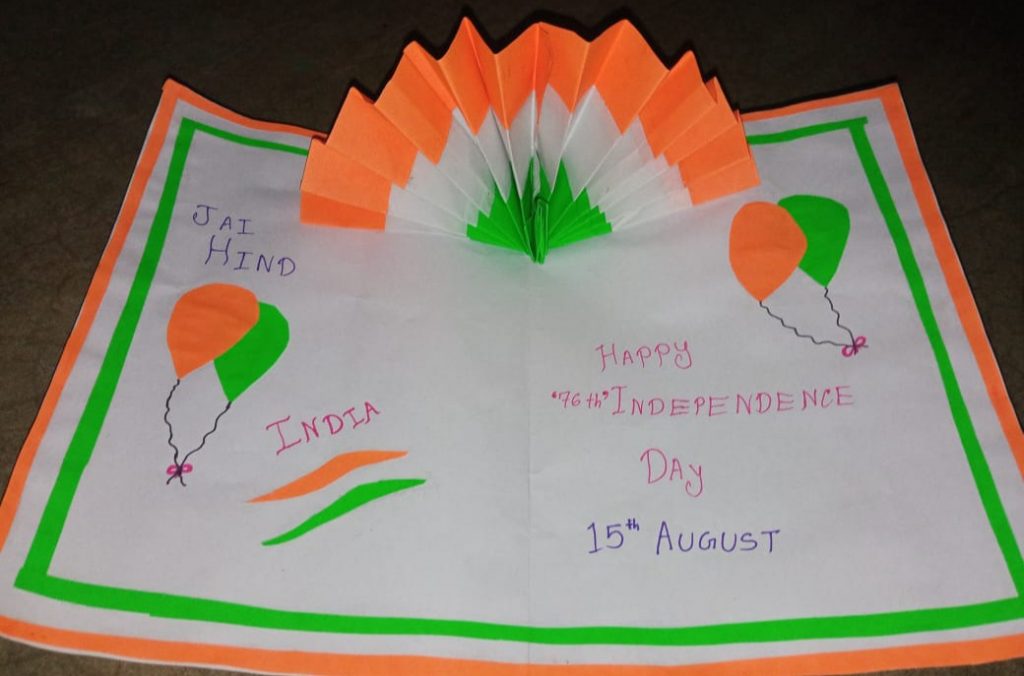 JAI
HIND
INDIA
HAPPY
"76th" INDEPENDENCE
DAY
15th AUGUST